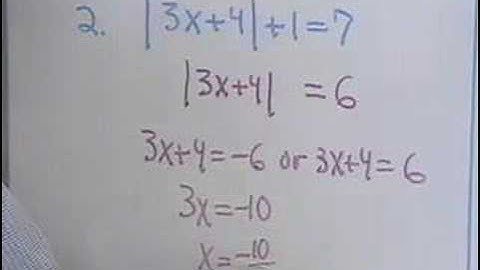 2. |3x+4|+1=7
|3x+4| = 6
3x+4=-6 or 3x+4=6
3x=-10
x=-10